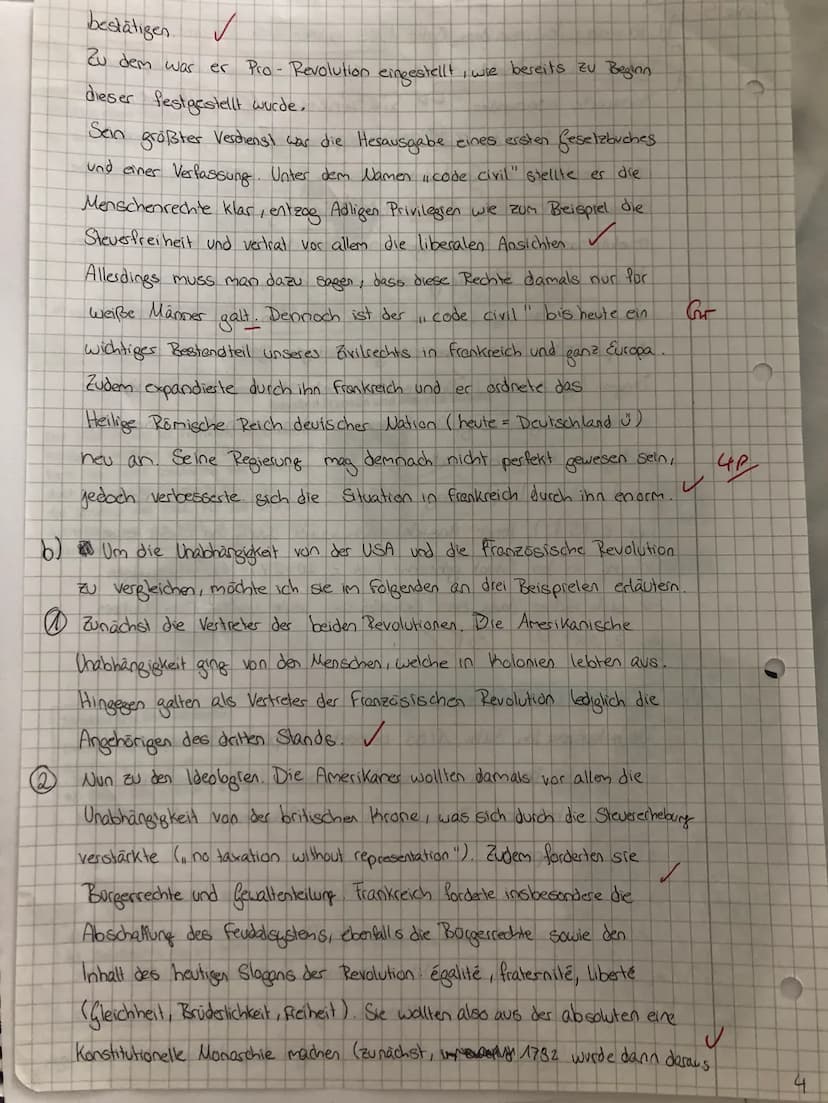 bestätigen ✓
Zu dem war er Pro-Revolution eingestellt, wie bereits zu Beginn
dieser festgestellt wurde.
Sein größter Verdienst war die Herausgabe eines ersten Gesetzbuches
und einer Verfassung. Unter dem Namen „code civil" stellte er die
Menschenrechte klar, entzog Adligen Privilegien wie zum Beispiel die
Steuerfreiheit und vertrat vor allem die liberalen Ansichten. ✓
Allerdings muss man dazu sagen, dass diese Rechte damals nur für
weiße Männer galt. Dennoch ist der „code civil" bis heute ein Gr
wichtiges Bestandteil unseres Zivilrechts in Frankreich und ganz Europa.
Zudem expandierte durch ihn Frankreich und er ordnete das
Heilige Römische Reich deutscher Nation (heute = Deutschland ü)
neu an. Seine Regierung mag demnach nicht perfekt gewesen sein, 4P
jedoch verbesserte sich die Situation in Frankreich durch ihn enorm. ✓
b) Um die Unabhängigkeit von der USA und die Französische Revolution
zu vergleichen, möchte ich sie im Folgenden an drei Beispielen erläutern.
① Zunächst die Vertreter der beiden Revolutionen. Die Amerikanische
Unabhängigkeit ging von den Menschen, welche in Kolonien lebten aus.
Hingegen galten als Vertreter der Französischen Revolution lediglich die
Angehörigen des dritten Stands. ✓
② Nun zu den Ideologien. Die Amerikaner wollten damals vor allem die
Unabhängigkeit von der britischen Krone, was sich durch die Steuererhebung
verstärkte („no taxation without representation"). Zudem forderten sie
Bürgerrechte und Gewaltenteilung. Frankreich forderte insbesondere die ✓
Abschaffung des Feudalsystems, ebenfalls die Bürgerrechte sowie den
Inhalt des heutigen Slogans der Revolution: égalité, fraternité, liberté
(Gleichheit, Brüderlichkeit, Freiheit). Sie wollten also aus der absoluten eine
Konstitutionelle Monarchie machen (zunächst, 1792 wurde dann daraus ✓
4